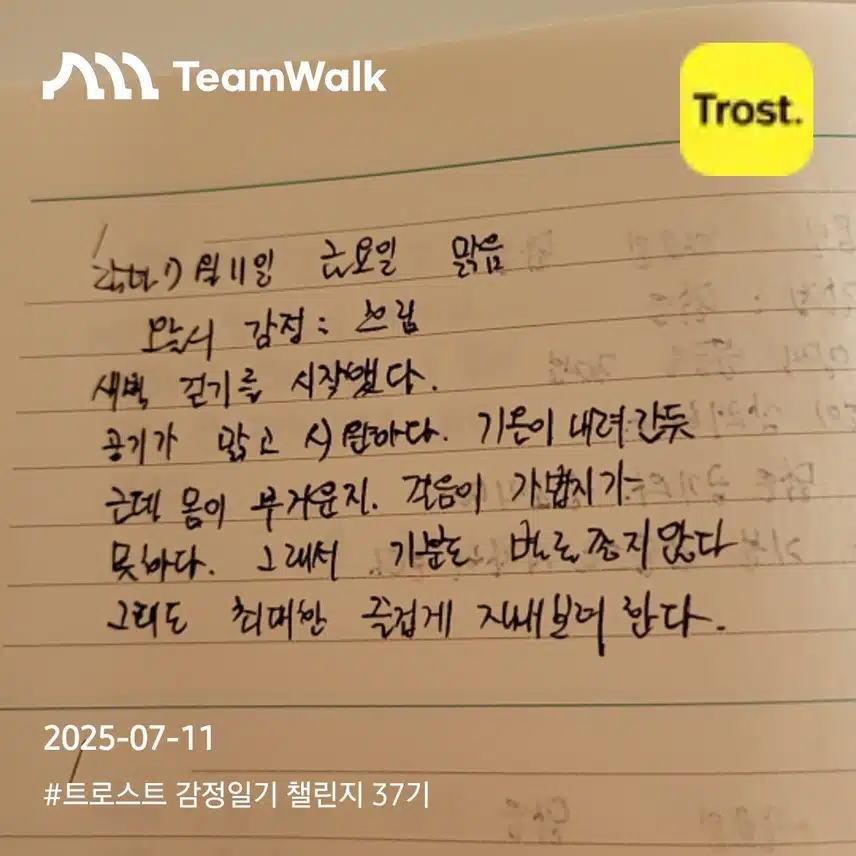 TeamWalk
Trost.
7월 11일 금요일 맑음
감정 : 흐림
새벽 걷기를 시작했다.
공기가 맑고 시원하다. 기온이 내려간듯
근데 몸이 무거운지. 걸음이 가볍지가
못하다. 그래서 기분도 별로 좋지 않다
그래도 최대한 즐겁게 지내보려 한다.
2025-07-11
#트로스트 감정일기 챌린지 37기